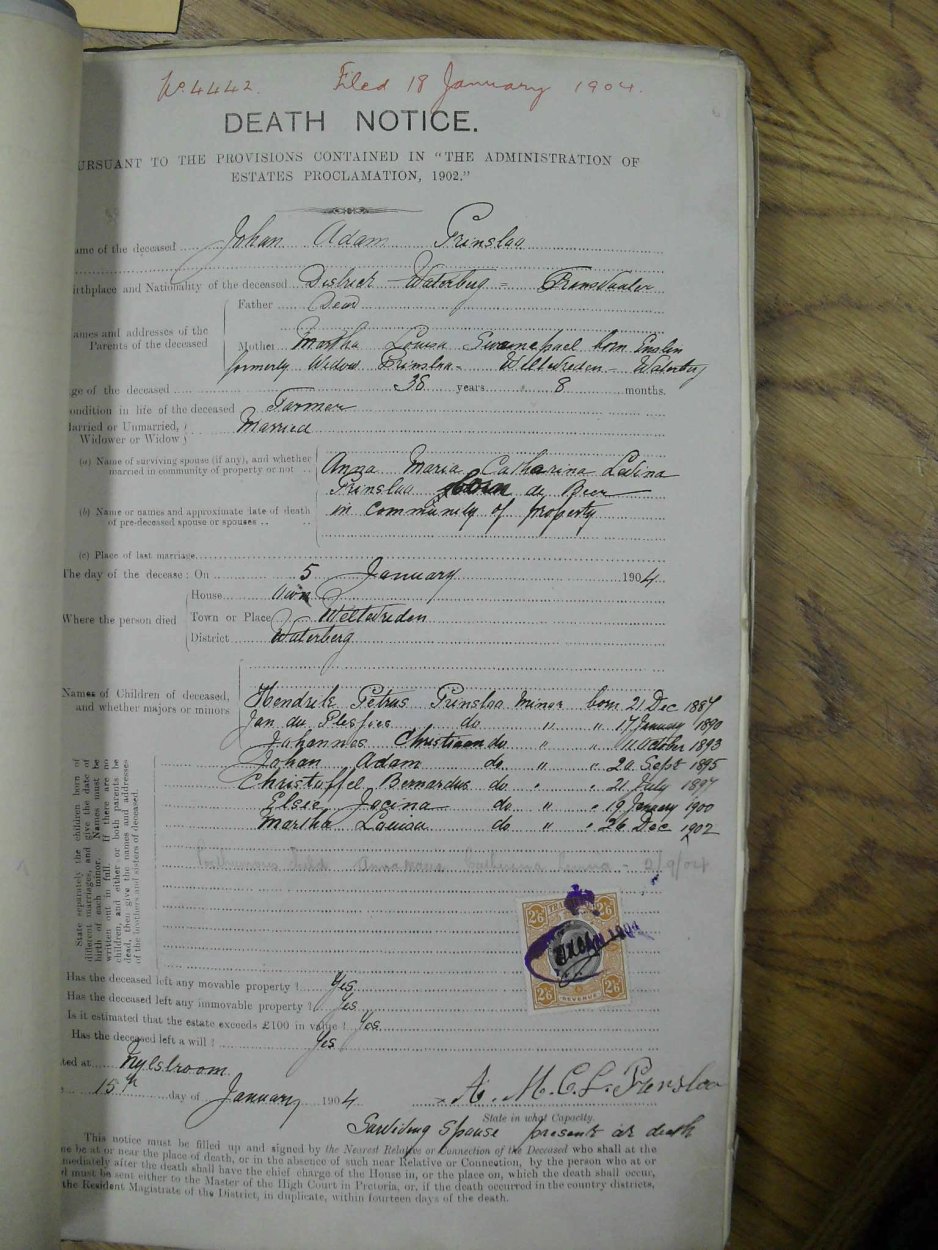 No. 4442. Filed 18 January 1904.
DEATH NOTICE.
URSUANT TO THE PROVISIONS CONTAINED IN "THE ADMINISTRATION OF
ESTATES PROCLAMATION, 1902."
ame of the deceased Johan Adam Prinsloo
irthplace and Nationality of the deceased District Waterberg = Transvaaler
Father Dead
ames and addresses of the
Parents of the deceased
Mother Martha Louisa Swanepoel born Enslin
formerly Widow Prinsloo - Weltevreden - Waterberg
ge of the deceased 36 years 8 months.
ondition in life of the deceased Farmer
arried or Unmarried, Married
Widower or Widow
(a) Name of surviving spouse (if any), and whether
married in community of property or not
Anna Maria Catharina Lavina
Prinsloo born de Beer
in community of property
(b) Name or names and approximate date of death
of pre-deceased spouse or spouses
(c) Place of last marriage
The day of the decease: On 5 January 1904
Where the person died
House own
Town or Place Weltevreden
District Waterberg
Names of Children of deceased,
and whether majors or minors
Hendrik Petrus Prinsloo minor born 21 Dec 1887
Jan du Plessies do " " 17 January 1890
Johannes Christiaan do " " 11 October 1893
Johan Adam do " " 20 Sept 1895
Christoffel Bernardus do " " 21 July 1897
Elsie Jacina do " " 19 January 1900
Martha Louisa do " " 26 Dec 1902
Posthumous child Anna Maria Catharina - 2/9/04
State separately the children born of
different marriages, and give the date of
birth of each minor. Names must be
written out in full. If there are no
children, and either or both parents be
dead, then give the names and addresses
of the brothers and sisters of deceased.
2/6 2/6
2/6 REVENUE 2/6
Has the deceased left any movable property? Yes
Has the deceased left any immovable property? Yes
Is it estimated that the estate exceeds £100 in value? Yes
Has the deceased left a will? Yes
ted at Nylstroom
15th day of January 1904
A. M. C. L. Prinsloo
State in what Capacity.
Surviving Spouse present at death
This notice must be filled up and signed by the Nearest Relative or Connection of the Deceased who shall at the
me be at or near the place of death, or in the absence of such near Relative or Connection, by the person who at or
mediately after the death shall have the chief charge of the House in, or the place on, which the death shall occur,
d must be sent either to the Master of the High Court in Pretoria, or, if the death occurred in the country districts,
the Resident Magistrate of the District, in duplicate, within fourteen days of the death.